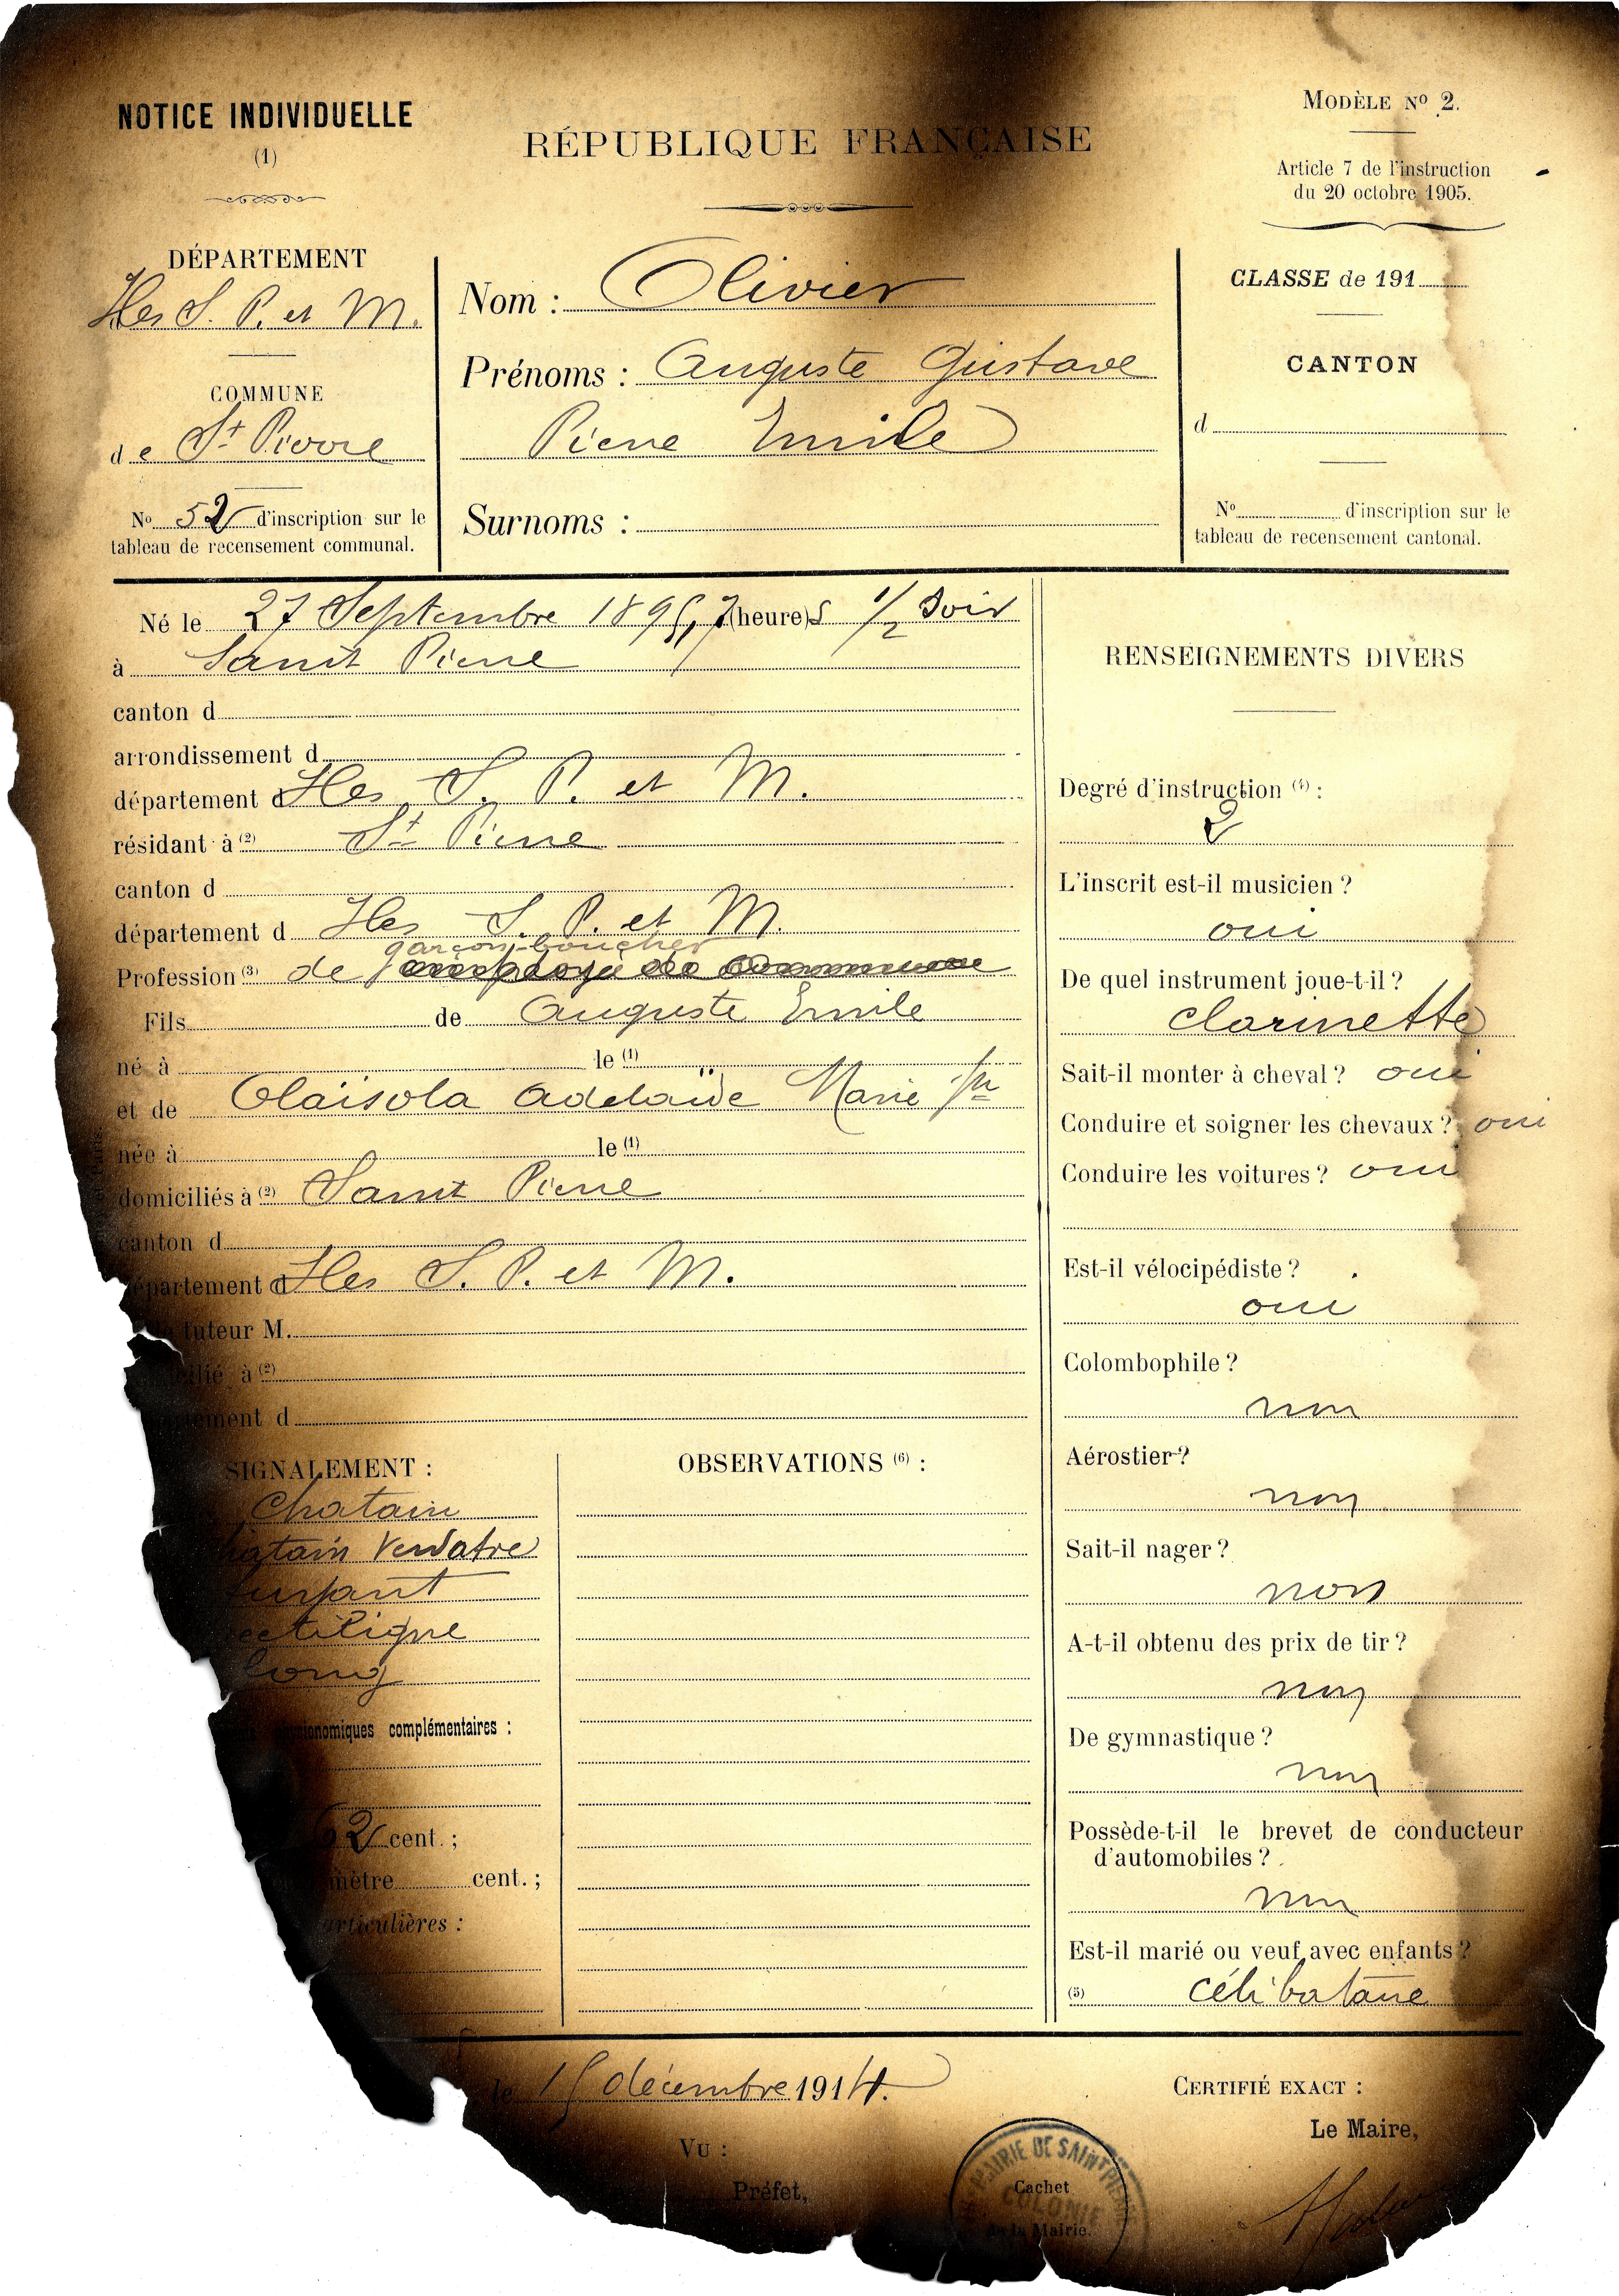 NOTICE INDIVIDUELLE
(1)
RÉPUBLIQUE FRANÇAISE
MODÈLE No 2.
Article 7 de l'instruction
du 20 octobre 1905.
DÉPARTEMENT
Iles S. P. et M.
COMMUNE
de St Pierre
No 52 d'inscription sur le
tableau de recensement communal.
Nom : Olivier
Prénoms : Auguste Gustave
Pierre Emile
Surnoms :
CLASSE de 191
CANTON
d
No d'inscription sur le
tableau de recensement cantonal.
Né le 27 Septembre 1895, 7 (heure)s 1/2 Soir
à Saint Pierre
canton d
arrondissement d
département d Iles S. P. et M.
résidant à (2) St Pierre
canton d
département d Iles S. P. et M.
garçon-boucher
Profession (3) de
Fils de Auguste Emile
né à le (1)
et de Olaïsola Adelaïde Marie
née à le (1)
domiciliés à (2) Saint Pierre
canton d
département d Iles S. P. et M.
tuteur M.
à (2)
d
SIGNALEMENT :
Chatain
Verdatre
rectiligne
long
complémentaires :
2 cent. ;
mètre cent. ;
particulières :
OBSERVATIONS (6) :
RENSEIGNEMENTS DIVERS
Degré d'instruction (4) :
2
L'inscrit est-il musicien ?
oui
De quel instrument joue-t-il ?
clarinette
Sait-il monter à cheval ? oui
Conduire et soigner les chevaux ? oui
Conduire les voitures ? oui
Est-il vélocipédiste ?
oui
Colombophile ?
non
Aérostier ?
non
Sait-il nager ?
non
A-t-il obtenu des prix de tir ?
non
De gymnastique ?
non
Possède-t-il le brevet de conducteur
d'automobiles ?
non
Est-il marié ou veuf avec enfants ?
(5) célibataire
le 15 décembre 1914.
VU :
Préfet,
MAIRIE DE SAINT PIERRE
COLONIE
Cachet
de la Mairie.
CERTIFIÉ EXACT :
Le Maire,